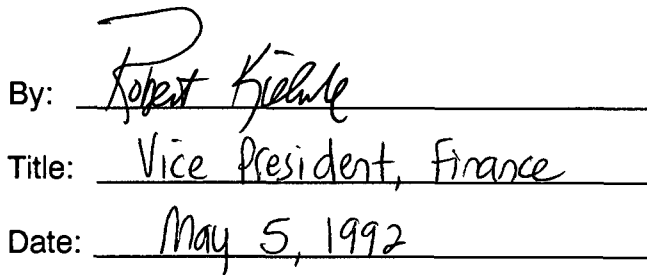 By: Robert
Title: Vice President, Finance
Date: May 5, 1992